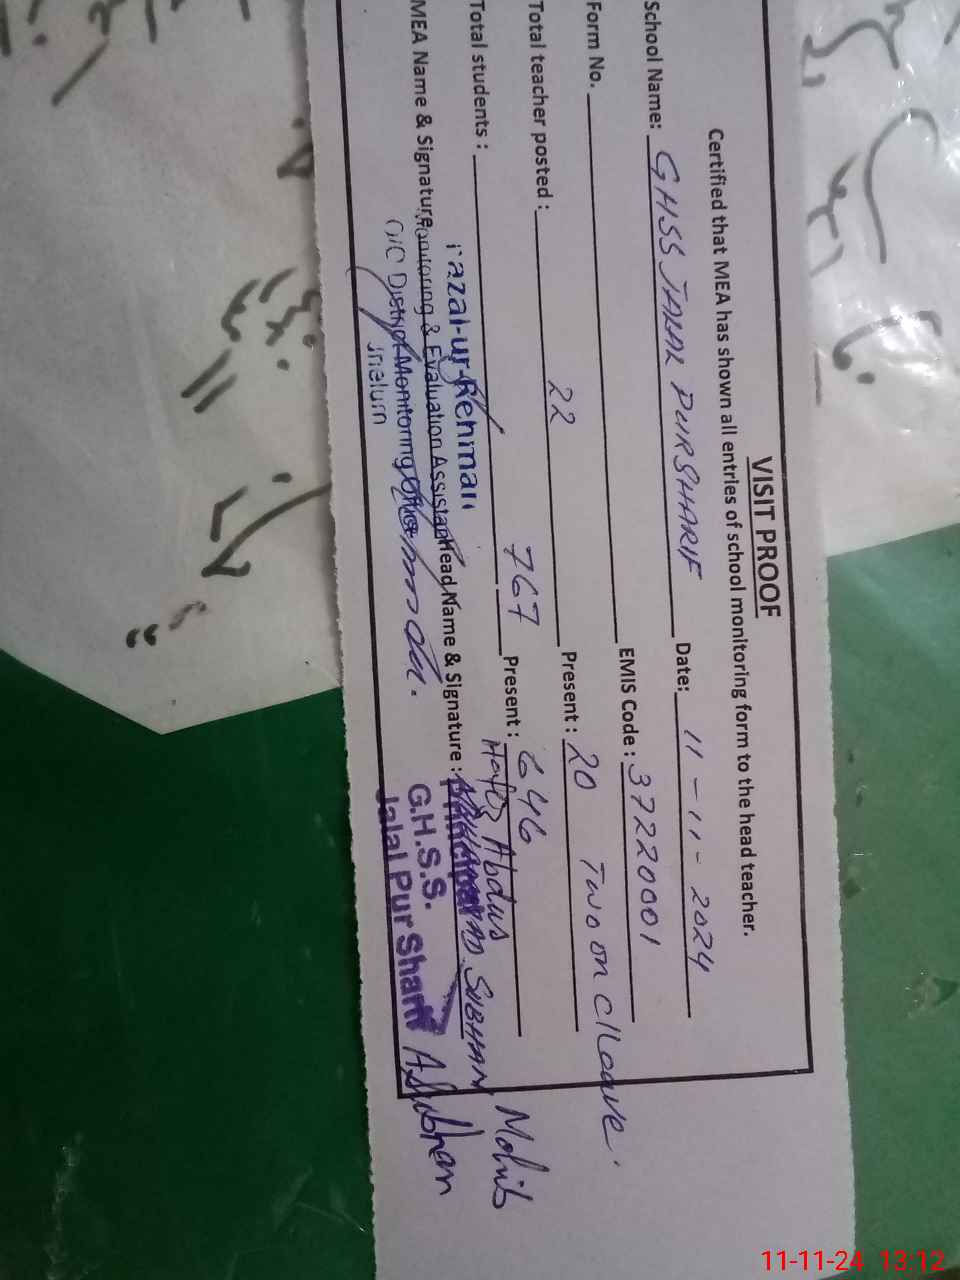 VISIT PROOF
Certified that MEA has shown all entries of school monitoring form to the head teacher.
School Name: GHSS JALAL PURSHARIF Date: 11-11-2024
Form No. EMIS Code : 37220001
Total teacher posted : 22 Present : 20 Two on c/leave.
Total students : 767 Present : 646
Hafiz Abdus Mohib
MEA Name & Signature Head Name & Signature : SUBHAN
Fazal-ur-Rehman
Monitoring & Evaluation Assistant
O/O District Monitoring Officer
Jhelum
Principal
G.H.S.S.
Jalal Pur Sharif
ASubhan
11-11-24 13:12